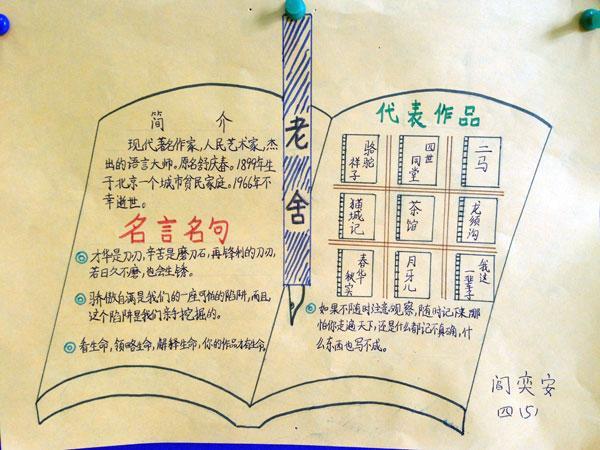 简 介
现代著名作家,人民艺术家,杰
出的语言大师。原名舒庆春。1899年生
于北京一个城市贫民家庭。1966年不
幸逝世。
名言名句
才华是刀刃,辛苦是磨刀石,再锋利的刀刃,
若日久不磨,也会生锈。
骄傲自满是我们的一座可怕的陷阱,而且,
这个陷阱是我们亲手挖掘的。
看生命,领略生命,解释生命,你的作品才有生命。
老舍
代表作品
骆驼
祥子
四世
同堂
二马
猫城
记
茶
馆
龙须沟
春华
秋实
月
牙儿
我这
一辈子
如果不随时注意观察,随时记下来,哪
怕你走遍天下,还是什么都记不真确,什
么东西也写不成。
阎奕安
四(5)